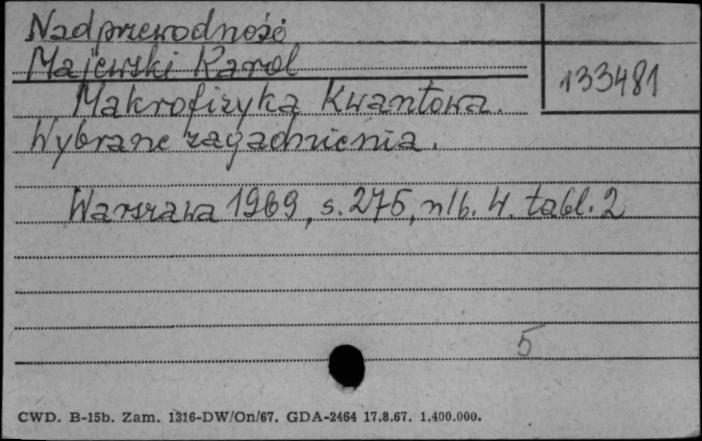 Nadprzewodność
Majewski Karol
133481
Makrofizyka Kwantowa.
Wybrane zagadnienia.
Warszawa 1969, s. 275, nlb. 4. tabl. 2
5
CWD. B-15b. Zam. 1316-DW/On/67. GDA-2464 17.8.67. 1.400.000.